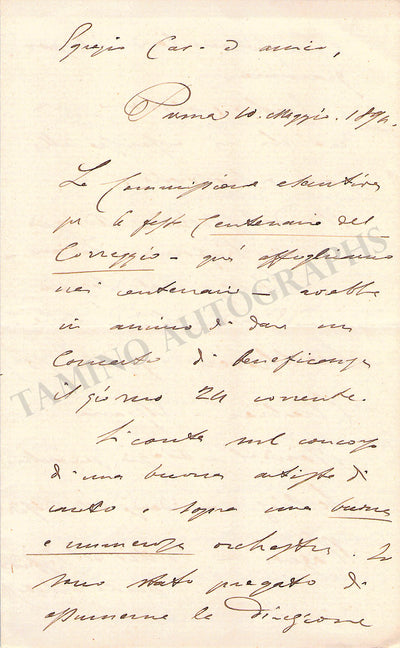 Egregio Cav. ed amico,
Parma 10. Maggio. 1894.
La Commissione esecutiva
per le feste Centenario del
Correggio - qui
nei centenari - avrebbe
in animo di dare un
Concerto di beneficenza
il giorno 24 corrente.
Si conta sul concorso
di una buona artista di
canto e sopra una buona
e numerosa orchestra. Io
sono stato pregato di
assumerne la direzione
TAMINO AUTOGRAPHS